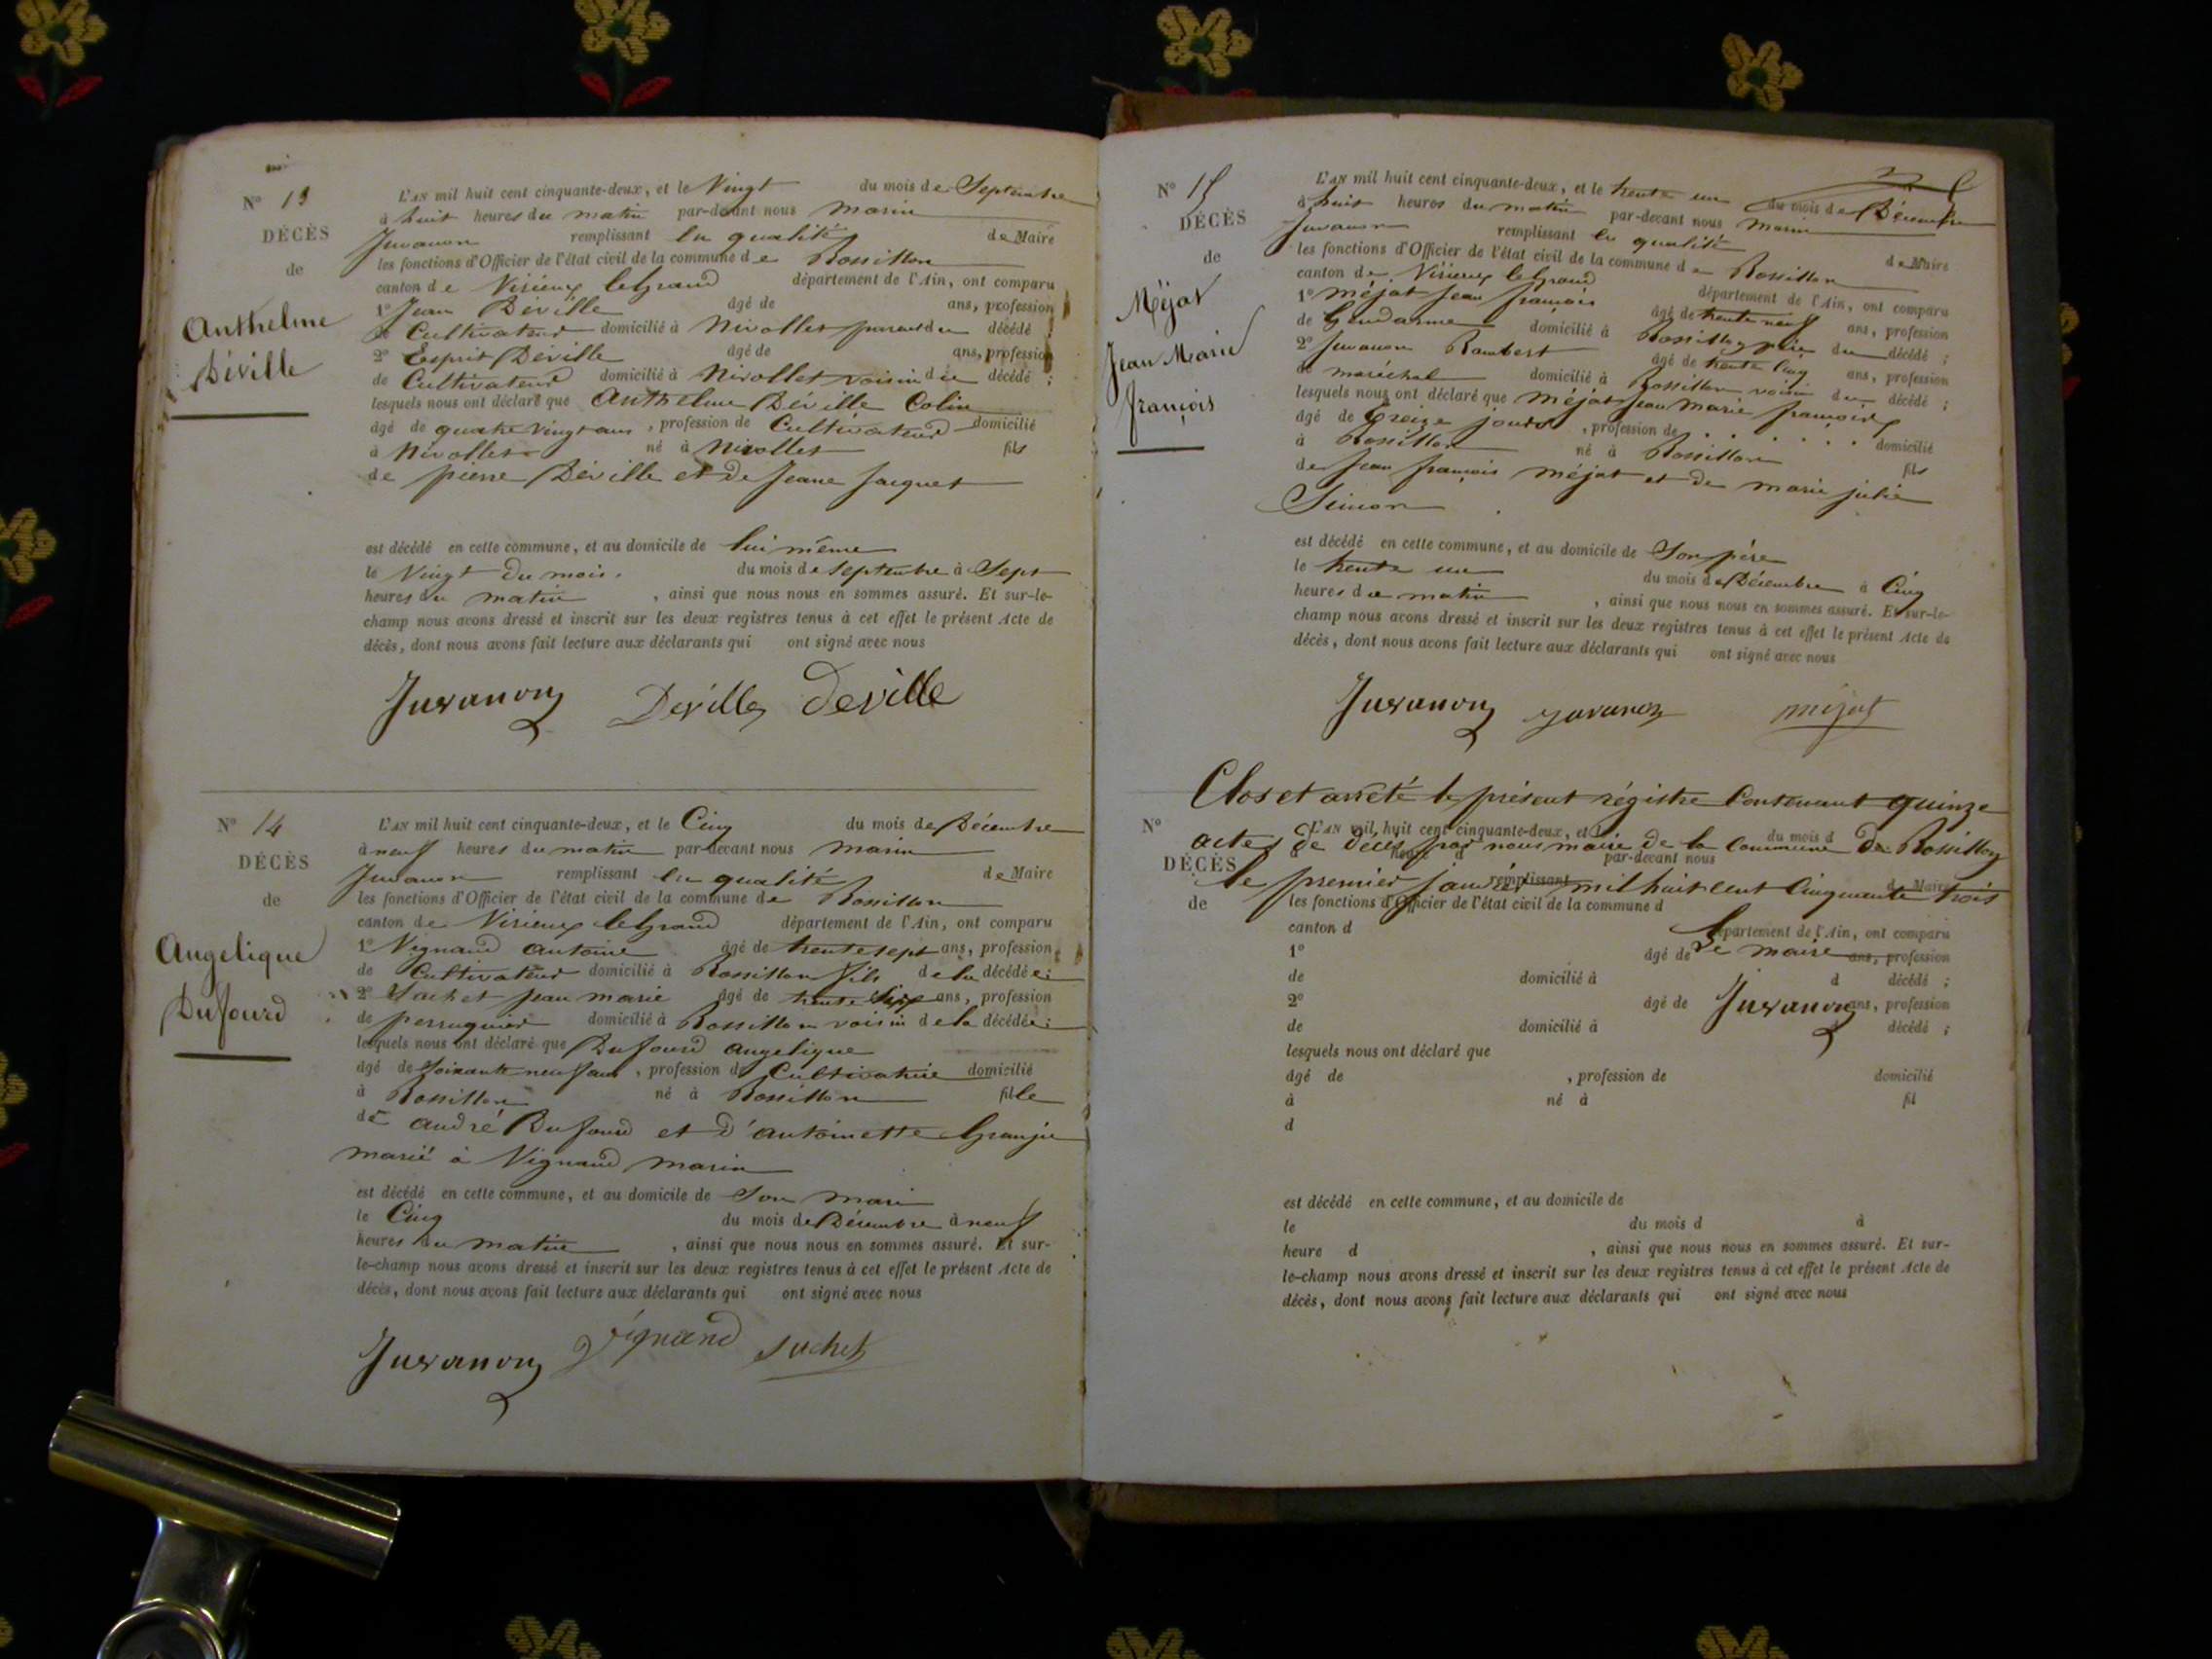 N° 13
DÉCÈS
de
Anthelme
Déville
L'AN mil huit cent cinquante-deux, et le Vingt du mois de Septembre
à huit heures du matin par-devant nous marin
Juvanon remplissant la qualité de Maire
les fonctions d'Officier de l'état civil de la commune de Rossillon
canton de Virieux legrand département de l'Ain, ont comparu
1° Jean Déville âgé de ans, profession
de Cultivateur domicilié à Nivollet parent du décédé ;
2° Esprit Déville âgé de ans, profession
de Cultivateur domicilié à Nivollet voisin du décédé ;
lesquels nous ont déclaré que Anthelme Déville Colin
âgé de quatre vingt ans , profession de Cultivateur domicilié
à Nivollet né à Nivollet fils
de pierre Déville et de Jeane Jacquet
est décédé en cette commune, et au domicile de lui même
le Vingt du mois. du mois de septembre à Sept
heures du matin , ainsi que nous nous en sommes assuré. Et sur-le-
champ nous avons dressé et inscrit sur les deux registres tenus à cet effet le présent Acte de
décès, dont nous avons fait lecture aux déclarants qui ont signé avec nous
Juvanon Déville deville
N° 14
DÉCÈS
de
Angelique
Dufourd
L'AN mil huit cent cinquante-deux, et le Cinq du mois de Décembre
à neuf heures du matin par-devant nous marin
Juvanon remplissant la qualité de Maire
les fonctions d'Officier de l'état civil de la commune de Rossillon
canton de Virieux legrand département de l'Ain, ont comparu
1° Vignand antoine âgé de trente sept ans, profession
de Cultivateur domicilié à Rossillon fils de la décédée ;
2° Suchet jean marie âgé de trente ans, profession
de perruquier domicilié à Rossillon voisin de la décédée ;
lesquels nous ont déclaré que Dufourd angelique
âgé de soixante neuf ans , profession de Cultivatrice domicilié
à Rossillon né à Rossillon fille
de andré Dufourd et d'antoinette Granju
marié à Vignand marin
est décédé en cette commune, et au domicile de Son mari
le Cinq du mois de Décembre à neuf
heures du matin , ainsi que nous nous en sommes assuré. Et sur-
le-champ nous avons dressé et inscrit sur les deux registres tenus à cet effet le présent Acte de
décès, dont nous avons fait lecture aux déclarants qui ont signé avec nous
Juvanon Vignand suchet
N° 15
DÉCÈS
de
Méjat
Jean Marie
françois
L'AN mil huit cent cinquante-deux, et le trente un du mois de Décembre
à huit heures du matin par-devant nous marin
Juvanon remplissant la qualité de Maire
les fonctions d'Officier de l'état civil de la commune de Rossillon
canton de Virieux legrand département de l'Ain, ont comparu
1° méjat jean françois âgé de trente neuf ans, profession
de Gendarme domicilié à Rossillon père du décédé ;
2° Juvanon Rambert âgé de trente Cinq ans, profession
de maréchal domicilié à Rossillon voisin du décédé ;
lesquels nous ont déclaré que méjat jean marie françois
âgé de treize jours , profession de . . . . . . . domicilié
à Rossillon né à Rossillon fils
de jean françois méjat et de marie julie
Simon
est décédé en cette commune, et au domicile de Son père
le trente un du mois de Décembre à Cinq
heures du matin , ainsi que nous nous en sommes assuré. Et sur-le-
champ nous avons dressé et inscrit sur les deux registres tenus à cet effet le présent Acte de
décès, dont nous avons fait lecture aux déclarants qui ont signé avec nous
Juvanon Juvanon méjat
Clos et arrêté le présent régistre Contenant quinze
actes de décès par nous maire de la Commune de Rossillon
le premier janvier mil huit cent Cinquante trois
Le maire
Juvanon
N°
DÉCÈS
de
L'AN mil huit cent cinquante-deux, et l du mois d
heure d par-devant nous
remplissant d Maire
les fonctions d'Officier de l'état civil de la commune d
canton d département de l'Ain, ont comparu
1° âgé de ans, profession
de domicilié à d décédé ;
2° âgé de ans, profession
de domicilié à décédé ;
lesquels nous ont déclaré que
âgé de , profession de domicilié
à né à fil
d
est décédé en cette commune, et au domicile de
le du mois d à
heure d , ainsi que nous nous en sommes assuré. Et sur-
le-champ nous avons dressé et inscrit sur les deux registres tenus à cet effet le présent Acte de
décès, dont nous avons fait lecture aux déclarants qui ont signé avec nous